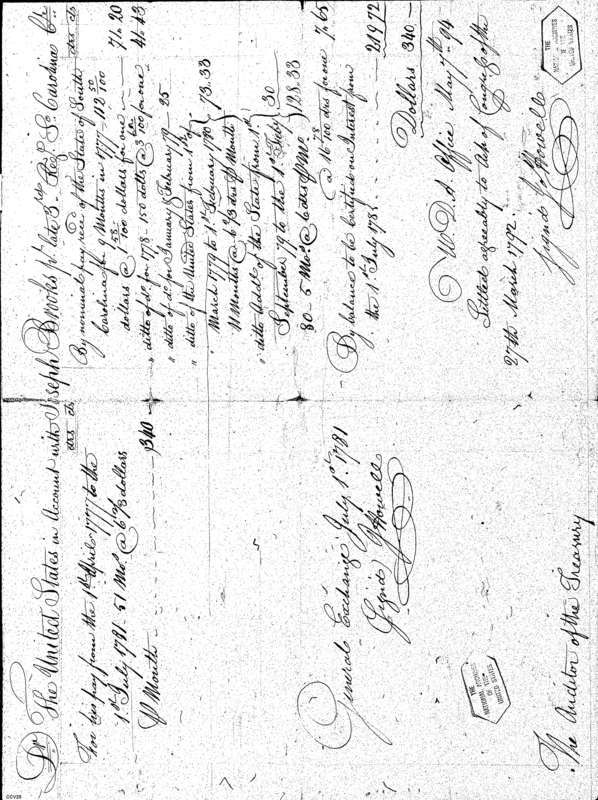 Dr. The United States in Account with Joseph Brooks pr. late 3d. Reg. So. Carolina Cr.
drs cts
For his pay from the 1st April 1777 to the
1st July 1781 - 51 Mos. @ 6 2/3 dollars
P Month - - - - - - - $340 -
General Exchange July 1st. 1781
Signd J Howell
The Auditor of the Treasury
drs cts
By nominal pay recd. of the State of South
Carolina for 9 Months in 1777 - 112 50/100
dollars @ 1 58/100 dollars for one - 71. 20
" ditto of do. for 1778 - 150 dolls @ 3 100 for one 41. 43
" ditto of do. for January & February 79 - 25
" ditto of the United States from 1st
March 1779 to 1st February 1780 } 73.33
11 Months @ 6 2/3 drs P Month
" ditto Addl. of the State from 1st
September 79 to the 1st Feby. } 30
80 - 5 Mos. @ 6 drs P Mo. 128.33
@ 16 78/100 drs for one 7.65
By balance to be Certified on Interest from
the 1st July 1783 - - - - - 219 72
Dollars 340 -
W. D. A. Office May 7th. 94
Settled agreeably to Act of Congress of the
27th March 1792.
Signd J Howell
THE
NATIONAL ARCHIVES
OF THE
UNITED STATES
THE
NATIONAL ARCHIVES
OF THE
UNITED STATES
CCV26